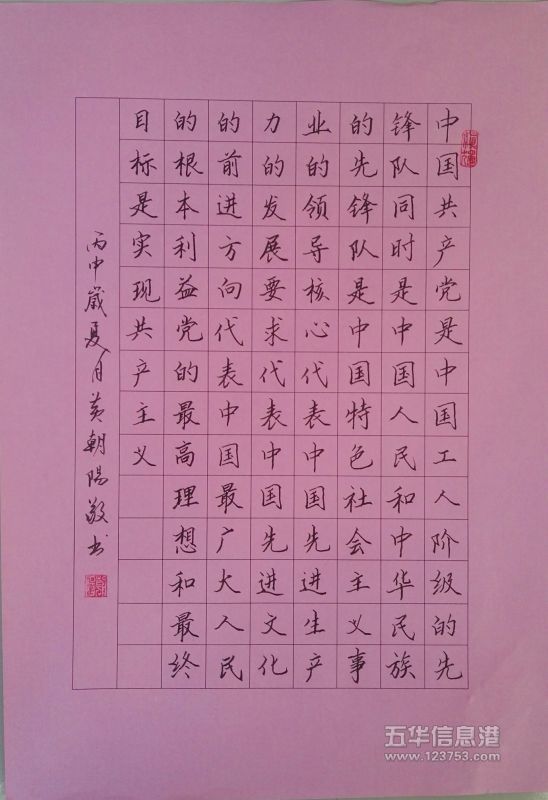 中国共产党是中国工人阶级的先
锋队同时是中国人民和中华民族
的先锋队是中国特色社会主义事
业的领导核心代表中国先进生产
力的发展要求代表中国先进文化
的前进方向代表中国最广大人民
的根本利益党的最高理想和最终
目标是实现共产主义
丙申歲夏月黄朝陽敬书
五华信息港
www.123753.com